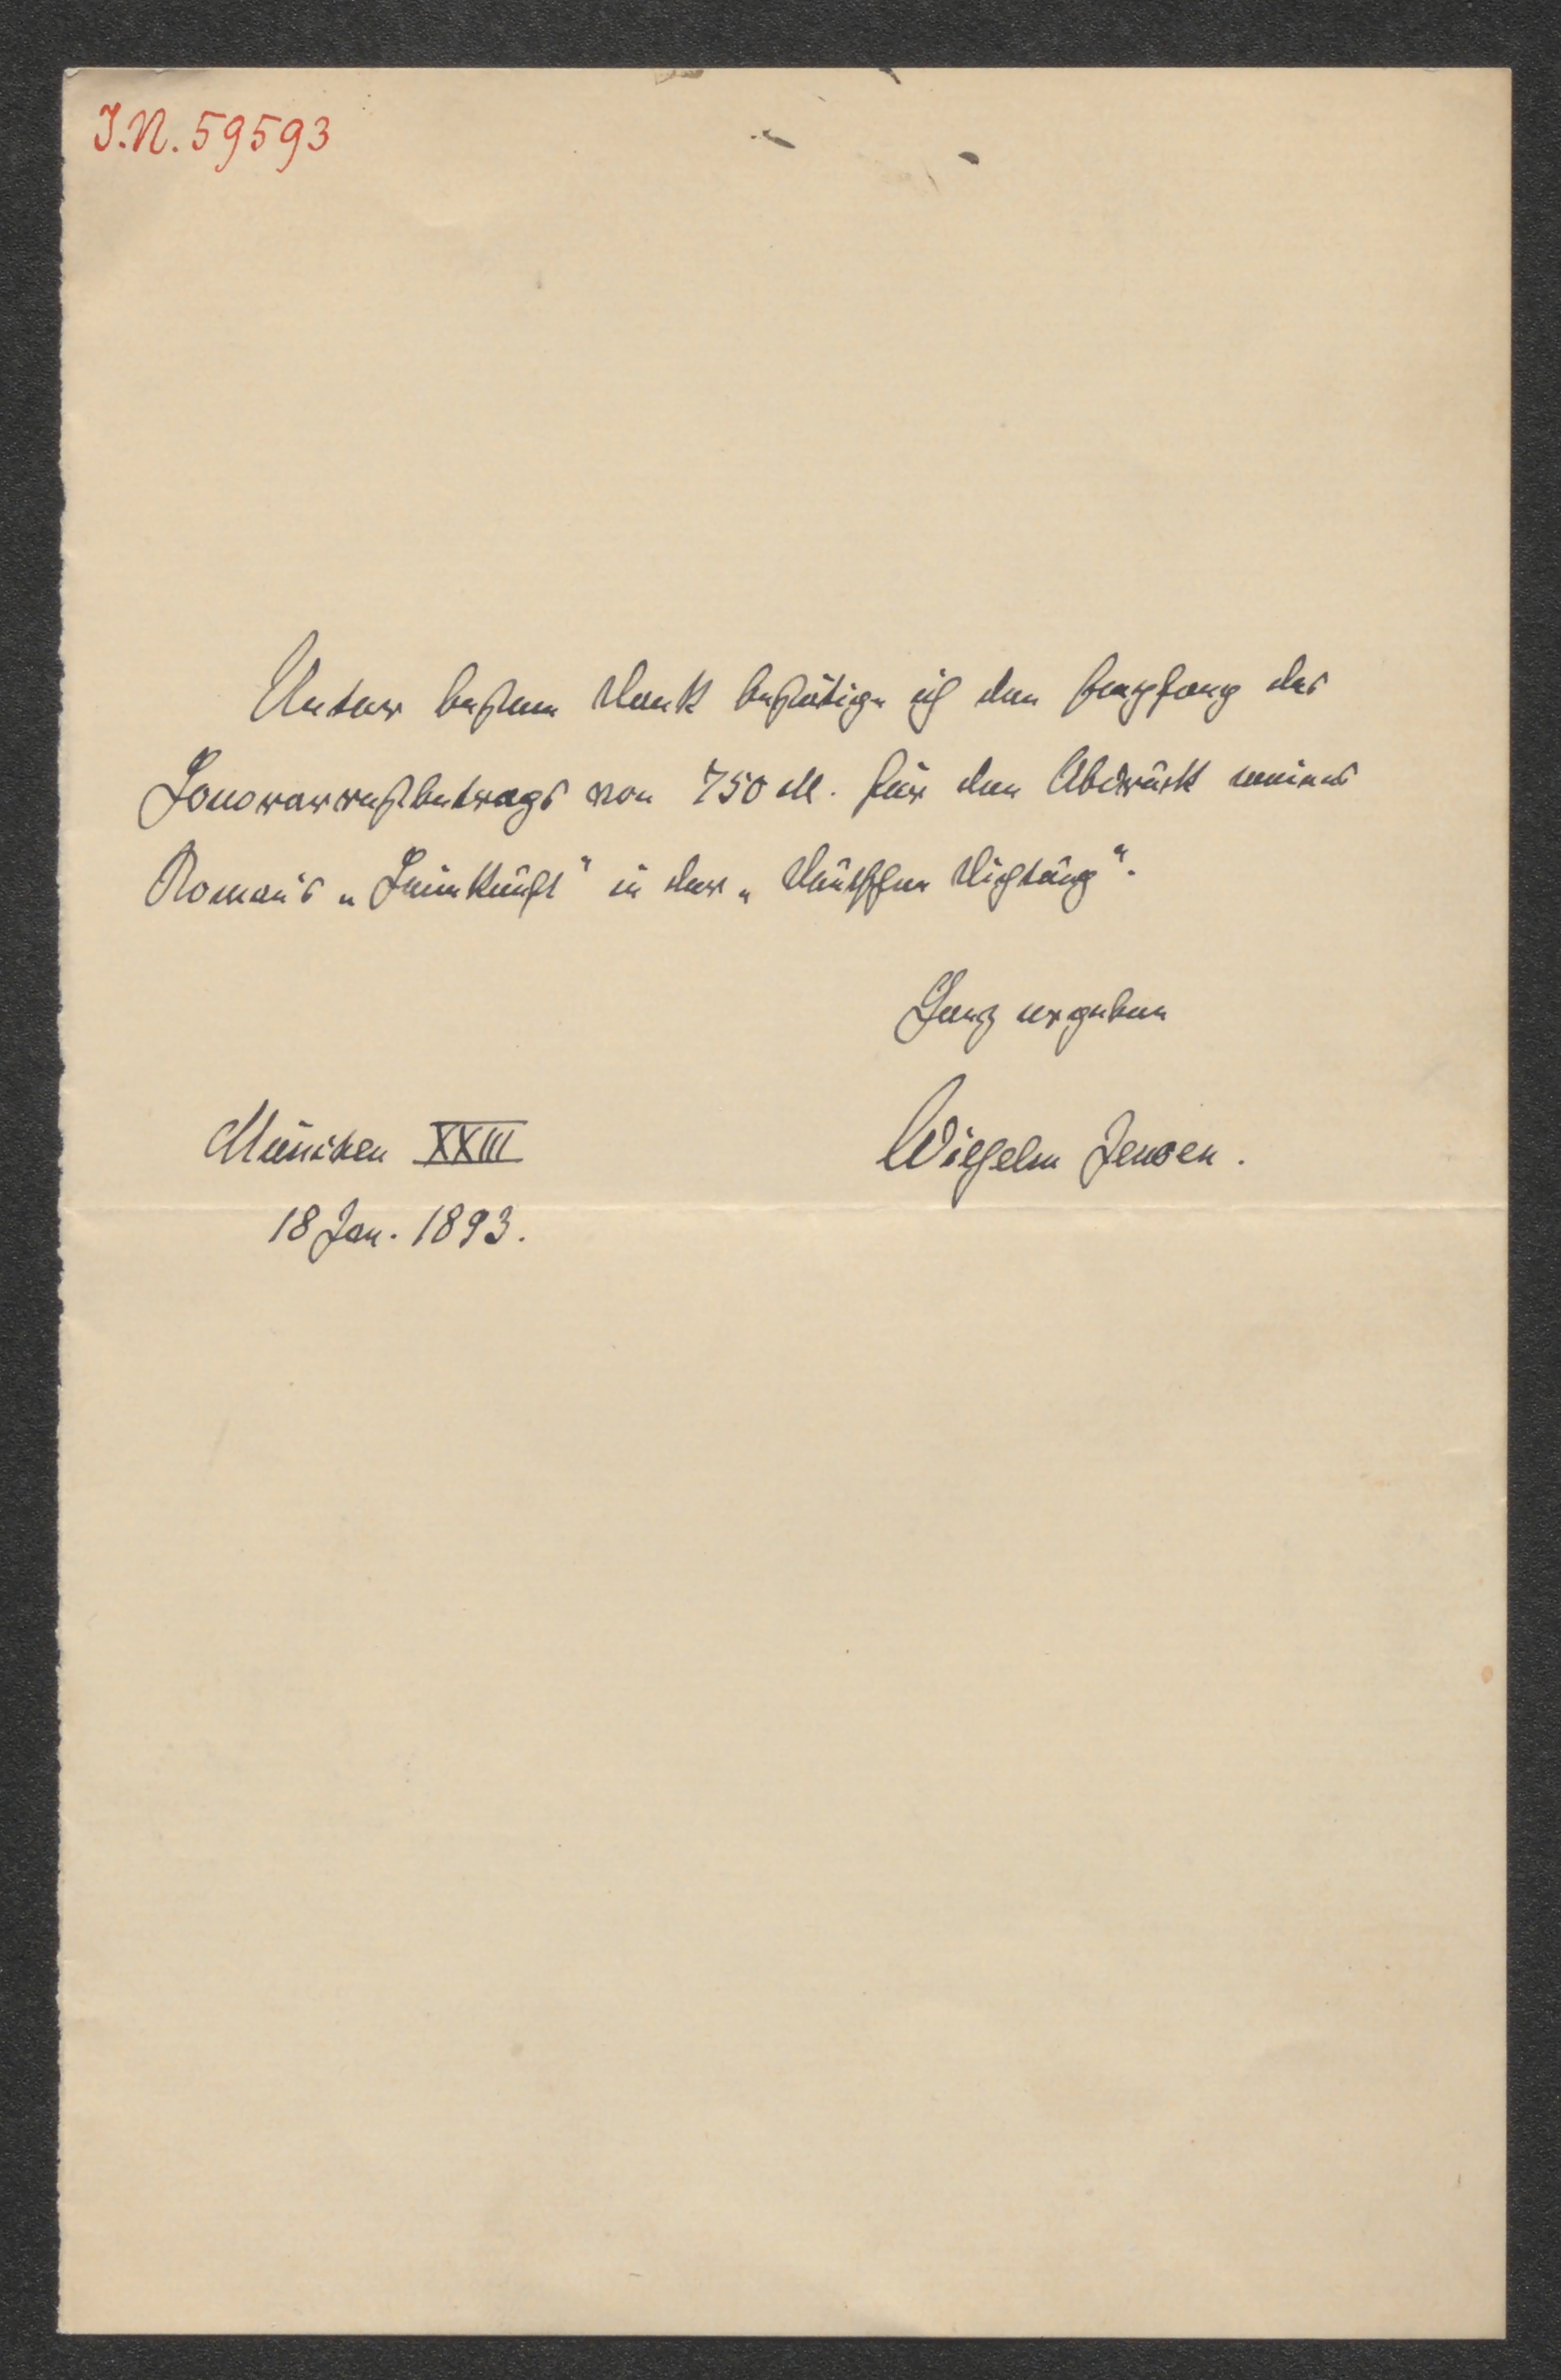 I.N. 59593
Unter bestem Dank bestätige ich den Empfang des
Honorarrestbetrags von 750 M. für den Abdruck meines
Roman's „Heimkunft" in der „Deutschen Dichtung".
Ganz ergeben
Wilhelm Jensen.
München XXIII
18 Jan. 1893.